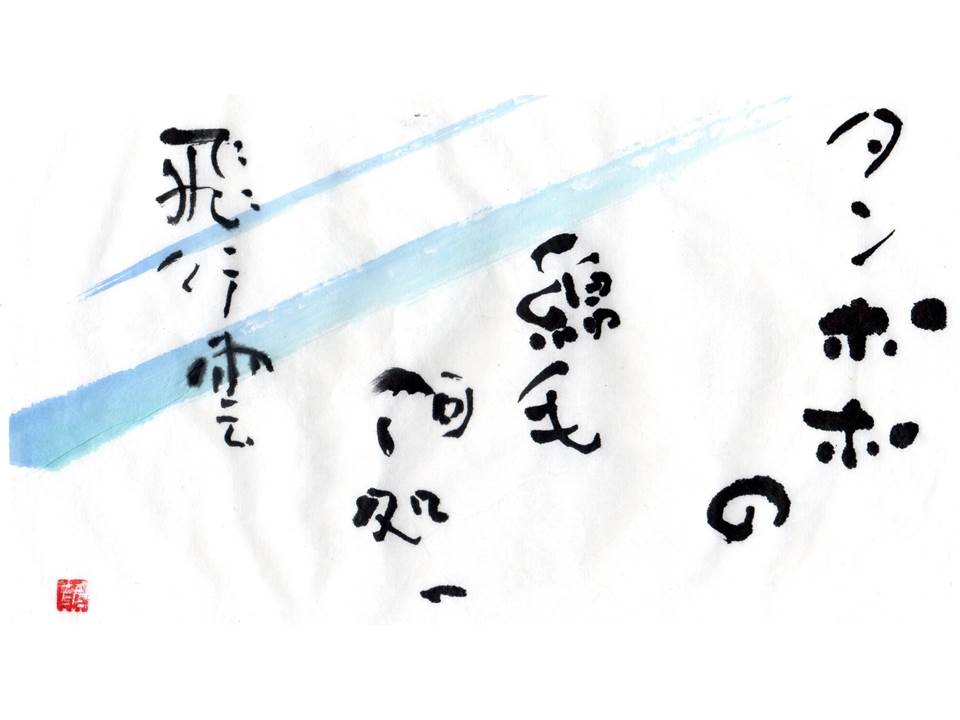 タンポポの
綿毛
何処へ
飛行雲